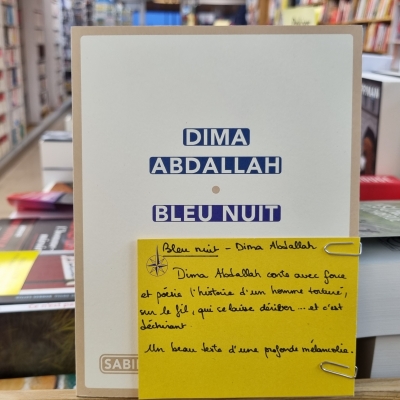 DIMA
ABDALLAH
BLEU NUIT
Bleu nuit - Dima Abdallah
Dima Abdallah conte avec force
et poésie l'histoire d'un homme torturé,
sur le fil, qui se laisse dériver ... et c'est
déchirant
Un beau texte d'une profonde mélancolie.
SABI